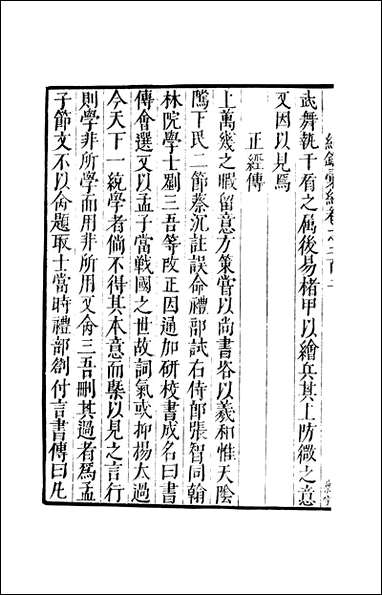 武舞執干者之属後易楮甲以繪兵其上防微之意
又因以見焉
正經傳
上萬幾之暇留意方策嘗以尚書咨以羲和惟天陰
隲下民二節蔡沉註誤命禮部試右侍郎張智同翰
林院學士劉三吾等改正因通加研校書成名曰書
傳會選又以孟子當戰國之世故詞氣或抑揚太過
今天下一統學者倘不得其本意而槩以見之言行
則學非所學而用非所用又命三吾刪其過者爲孟
子節文不以命題取士當時禮部劄付言書傳曰凡